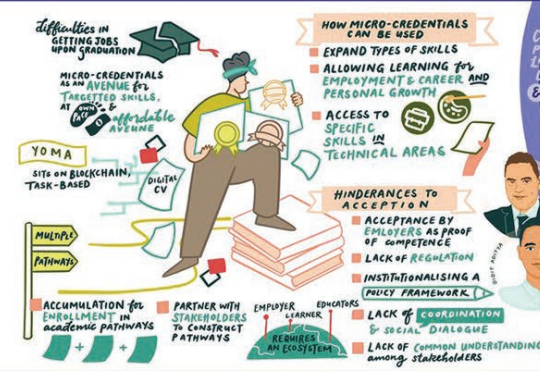 difficulties in
GETTING JOBS
UPON GRADUATION
MICRO-CREDENTIALS
AS AN AVENUE for
TARGETTED SKILLS,
AT OWN PACE & affordable
AVEUNE
YOMA
SITS ON BLOCKCHAIN,
TASK-BASED
DIGITAL
CV
MULTIPLE
PATHWAYS
ACCUMULATION for
ENROLLMENT IN
academic PATHWAYS
+ +
PARTNER WITH
STAKEHOLDERS
TO CONSTRUCT
PATHWAYS
EMPLOYER
LEARNER
EDUCATORS
REQUIRES
AN ECOSYSTEM
HOW MICRO-CREDENTIALS
CAN BE USED
EXPAND TYPES OF SKILLS
ALLOWING LEARNING for
EMPLOYMENT & CAREER AND
PERSONAL GROWTH
ACCESS TO
SPECIFIC
SKILLS IN
TECHNICAL AREAS
HINDERANCES TO
ACCEPTION
ACCEPTANCE BY
EMLOYERS AS PROOF
OF COMPETENCE
LACK OF REGULATION
INSTITUTIONALISING A
POLICY FRAMEWORK
LACK OF COORDINATION
& SOCIAL DIALOGUE
LACK OF COMMON UNDERSTANDING
among STAKEHOLDERS
ADITYA